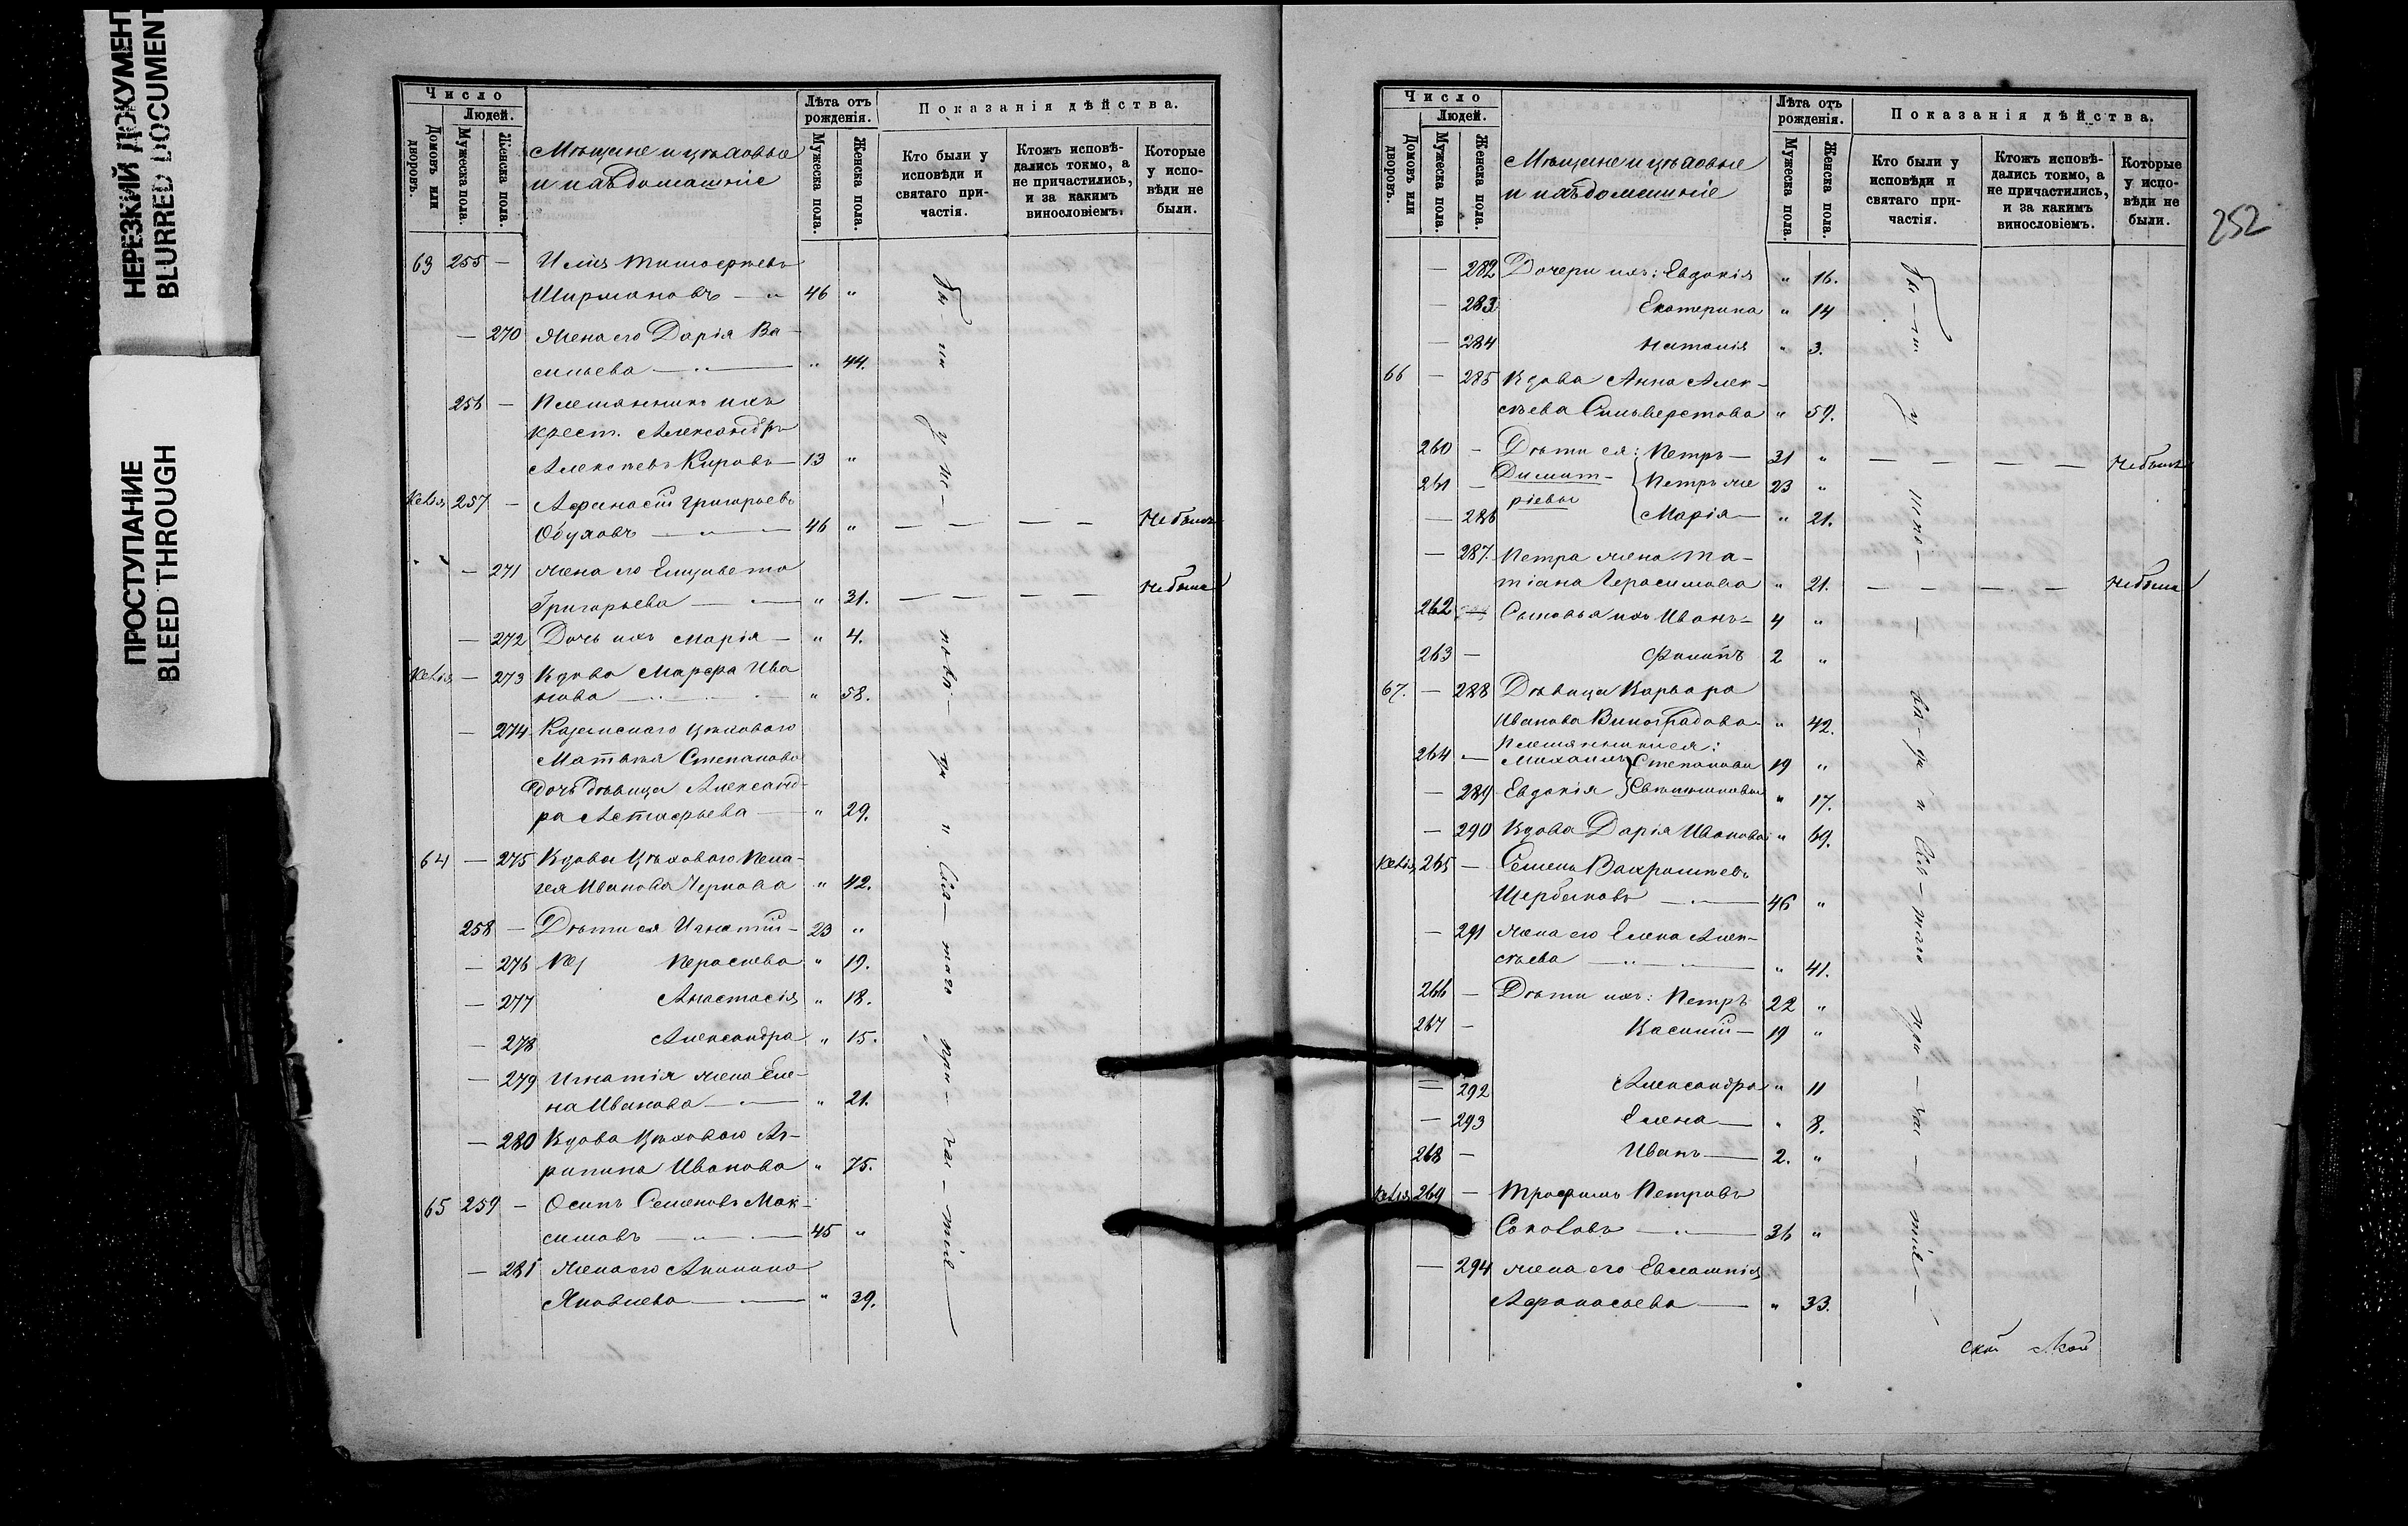 НЕРЕЗКИЙ ДОКУМЕНТ
BLURRED DOCUMENT
ПРОСТУПАНИЕ
BLEED THROUGH
Число
Людей.
Домовъ или дворовъ.
Мужеска пола.
Женска пола.
Мѣщане и цѣховые
и ихъ домашніе
Лѣта отъ рожденія.
Мужеска пола.
Женска пола.
Показанія дѣйства.
Кто были у исповѣди и святаго при-частія.
Ктожъ исповѣ-дались токмо, а не причастились, и за какимъ винословіемъ.
Которые у испо-вѣди не были.
63 255 — Илія Тимофеевъ
Ширмановъ — „ 46 „
— 270 Жена его Дарія Ва-
сильева — „ — „ 44.
256 — Племянникъ ихъ
крест. Александръ
Алексѣевъ Кировъ — 13 „
257 — Афанасій Григорьевъ
Обуховъ — „ — 46 „ — — — — Не былъ
— 271 Жена его Елизавета
Григорьева — „ 31. — — — — Не была
— 272 Дочь ихъ Марія — „ 4.
— 273 Вдова Марфа Ива
нова — „ 58.
— 274 Казанскаго цѣховаго
Матвѣя Степанова
дочь дѣвица Александ-
ра Астафьева — „ 29.
64 — 275 Вдова цѣховаго Пела-
гея Иванова Чернова „ 42.
258 — Дѣти ея Игнатій — 23 „
— 276 Парасева „ 19.
— 277 Анастасія „ 18.
— 278 Александра „ 15.
— 279 Игнатія жена Еле-
на Иванова — „ 21.
— 280 Вдова цѣховаго Аг-
рипина Иванова „ 75.
65 259 — Осипъ Семеновъ Мак-
симовъ — „ — 45 „
— 281 Жена его Акилина
Яковлева — „ 39.
Число
Людей.
Домовъ или дворовъ.
Мужеска пола.
Женска пола.
Мѣщане и цѣховые
и ихъ домашніе
Лѣта отъ рожденія.
Мужеска пола.
Женска пола.
Показанія дѣйства.
Кто были у исповѣди и святаго при-частія.
Ктожъ исповѣ-дались токмо, а не причастились, и за какимъ винословіемъ.
Которые у испо-вѣди не были.
252
— 282 Дочери ихъ: Евдокія „ 16.
— 283 Екатерина „ 14
— 284 Наталія „ 3.
66 — 285 Вдова Анна Алек-
сѣева Сильверстова „ 59.
260 — Дѣти ея: Петръ — 31 „ — — — — Не былъ
261 — Димит-ріевы Петръ же 23 „
— 286 Марія — „ 21.
— 287. Петра жена Та-
тіана Герасимова „ 21. — — — — Не была
262 — Сыновья ихъ Иванъ — 4 „
263 — Филипъ 2 „
67. — 288 Дѣвица Варвара
Иванова Виноградова „ 42.
Племянники ея:
264 — Михаилъ Степановы 19 „
— 289 Евдокія „ 17.
— 290 Вдова Дарія Иванова „ 69.
265 — Семенъ Вахромѣевъ
Щербаковъ — „ 46 „
— 291 Жена его Елена Алек-
сѣева — „ „ 41.
266 — Дѣти ихъ: Петръ 22 „
267 — Василій — 19 „
— 292 Александра „ 11
— 293 Елена — „ 8.
268 — Иванъ — 2. „
269 — Трофимъ Петровъ
Соколовъ — „ 36 „
— 294 Жена его Евлампія
Афанасьева — „ 33.